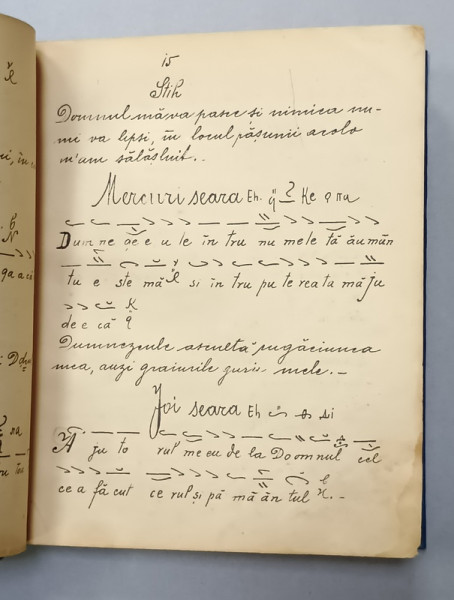 15
Stih
Domnul mă va paște și nimica nu-
mi va lipsi, în locul pășunii acolo
m'am sălășluit..
Mercuri seara Eh. Ke
Dum ne ze e u le în tru nu mele tă ău mân
tu e ște mă și în tru pu te rea ta mă ju
de e că
Dumnezeule ascultă rugăciunea
mea, auzi graiurile gurii mele.-
Joi seara Eh
A ju to rul meu de la Do omnul cel
ce a fă cut ce rul și pă mă ân tul